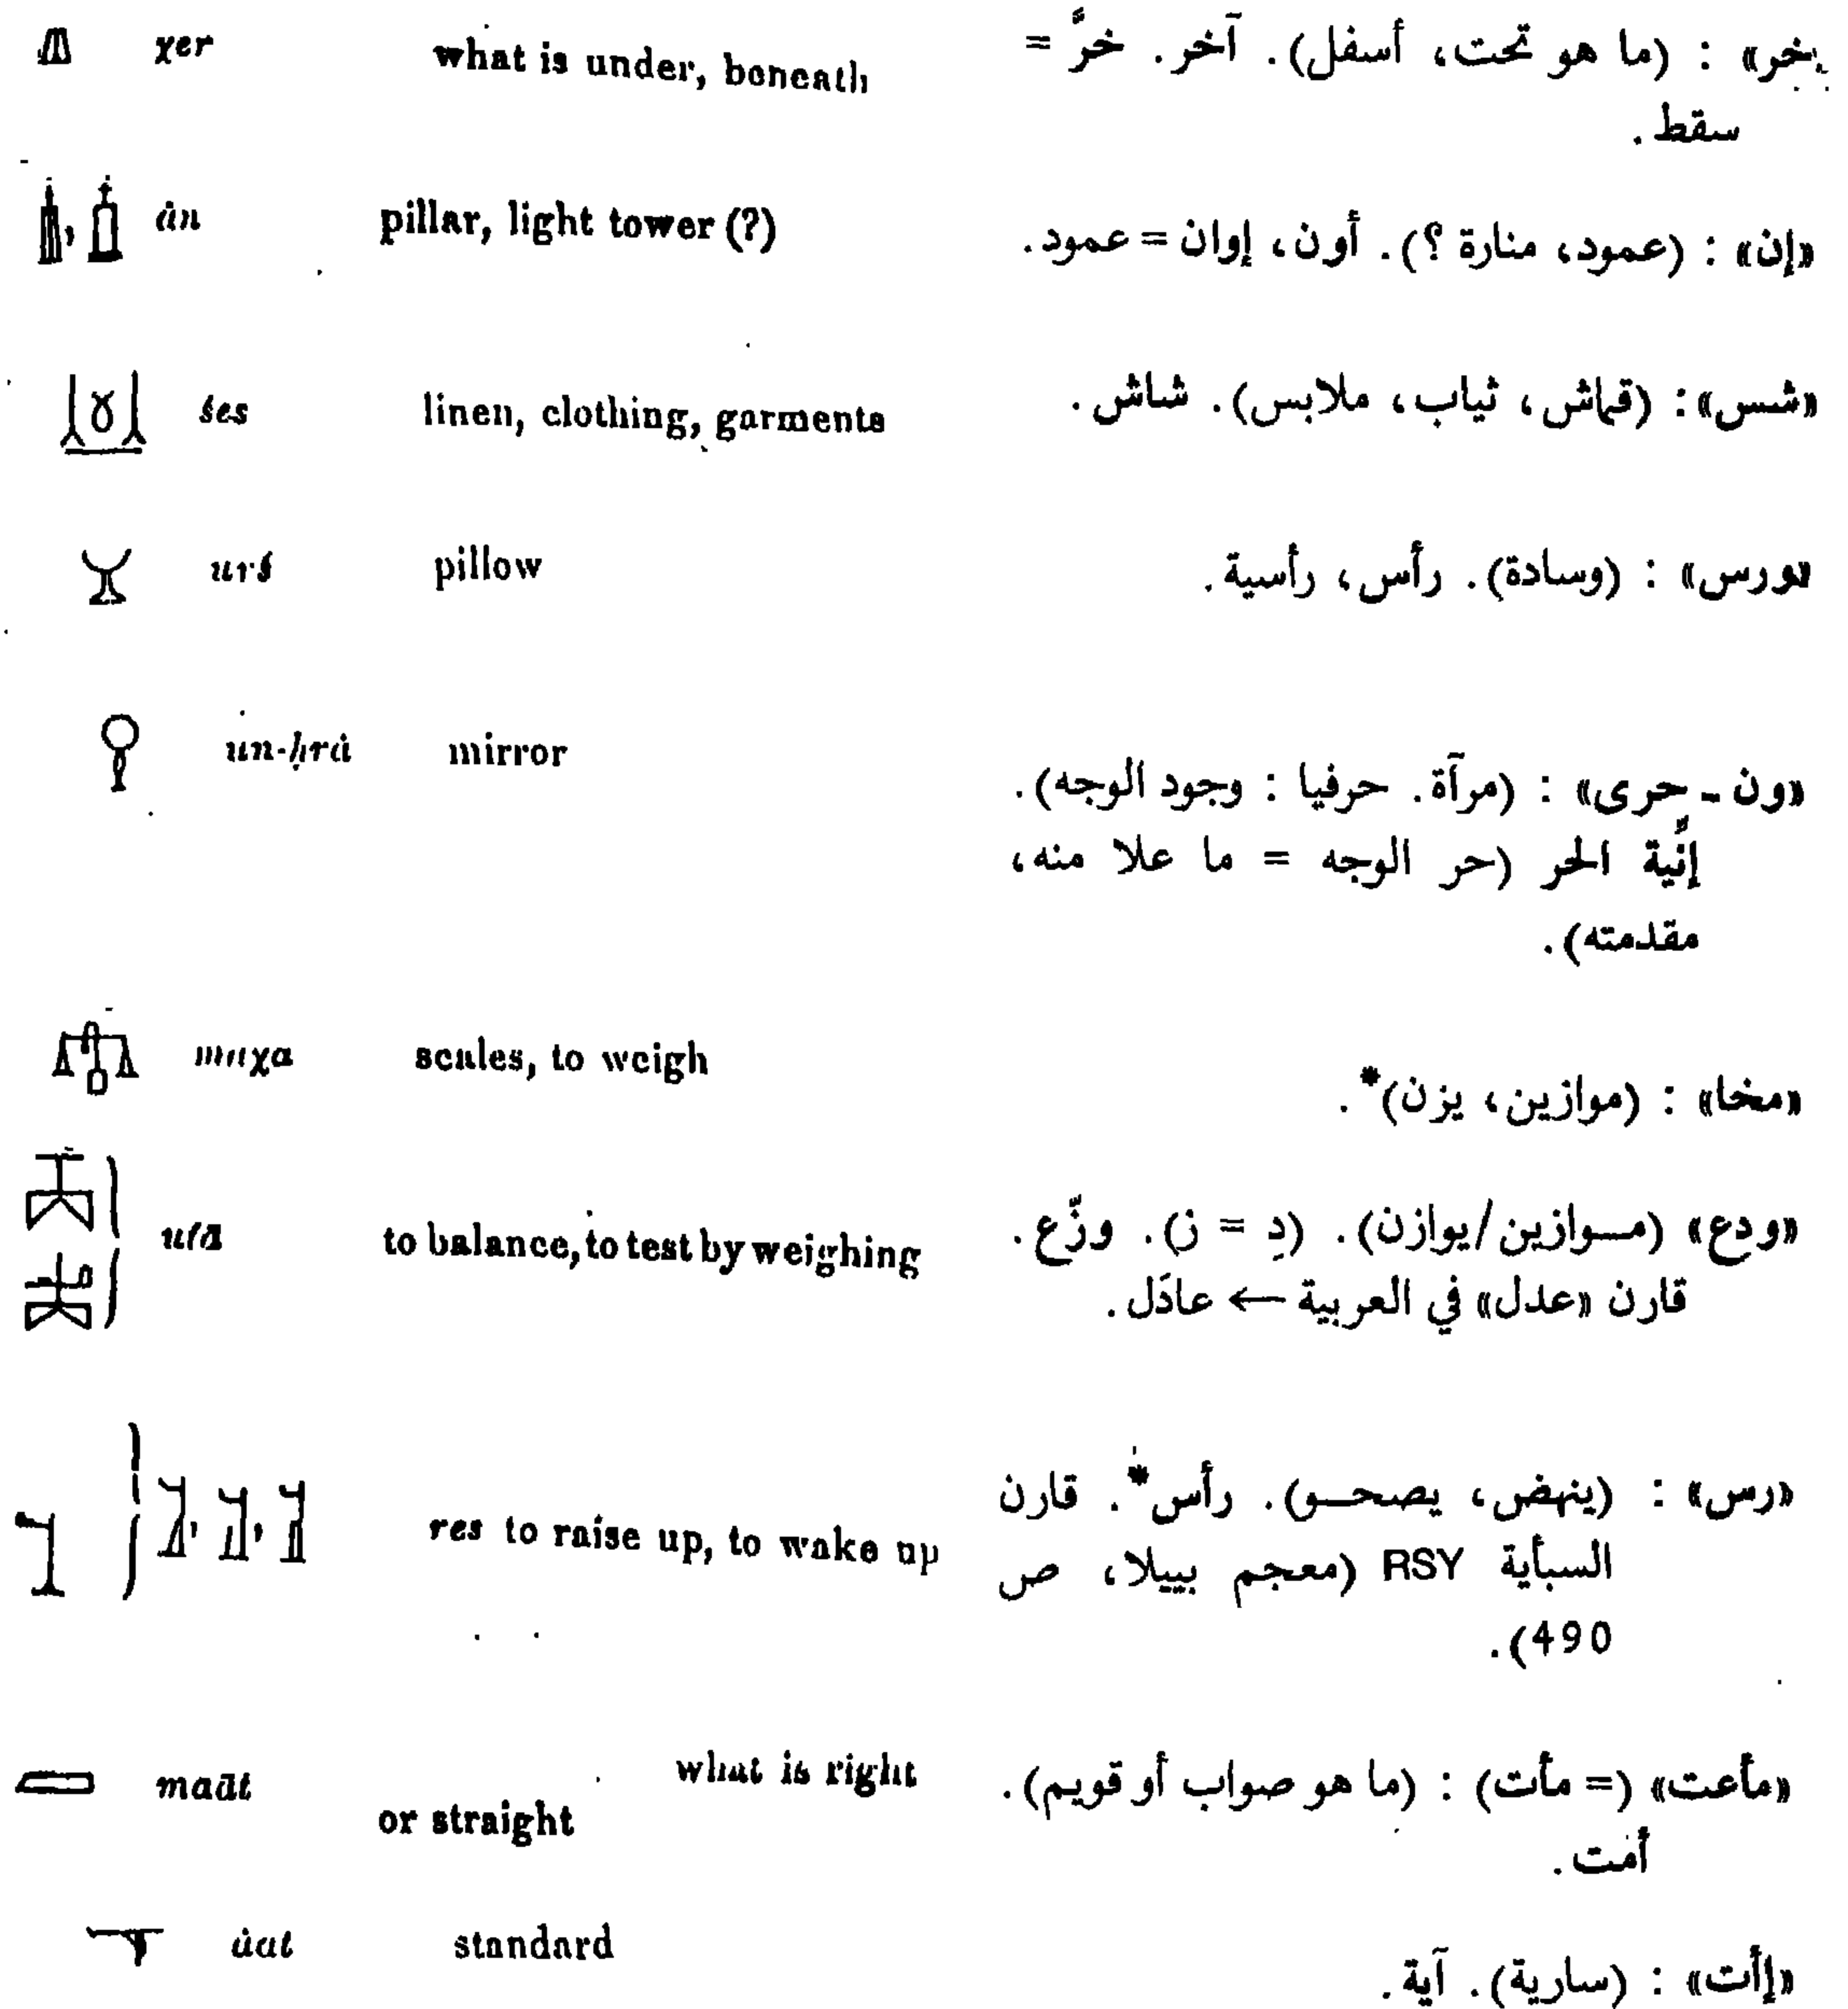 χer what is under, beneath «خر» : (ما هو تحت، أسفل). آخر. خرَّ =
سقط.
ȧn pillar, light tower (?) «إن» : (عمود، منارة ؟). أون، إوان = عمود.
śes linen, clothing, garments «شس» : (قماش، ثياب، ملابس). شاش.
urś pillow «ورس» : (وسادة). رأس، رأسية.
un-ḥrȧ mirror «ون - حرى» : (مرآة. حرفيا : وجود الوجه).
إنِّية الحر (حر الوجه = ما علا منه،
مقدمته).
māχa scales, to weigh «مخا» : (موازين، يزن)*.
utā to balance, to test by weighing «ودِع» (مـوازين/يوازن). (دِ = ز). وزّع.
قارن «عدل» في العربية ← عادَل.
res to raise up, to wake up «رس» : (ينهض، يصحـو). رأس*. قارن
السبأية RSY (معجم بييلا، ص
490).
maāt what is right «مأعت» (= مأت) : (ما هو صواب أو قويم).
or straight أمت.
ȧat standard «إأت» : (سارية). آية.